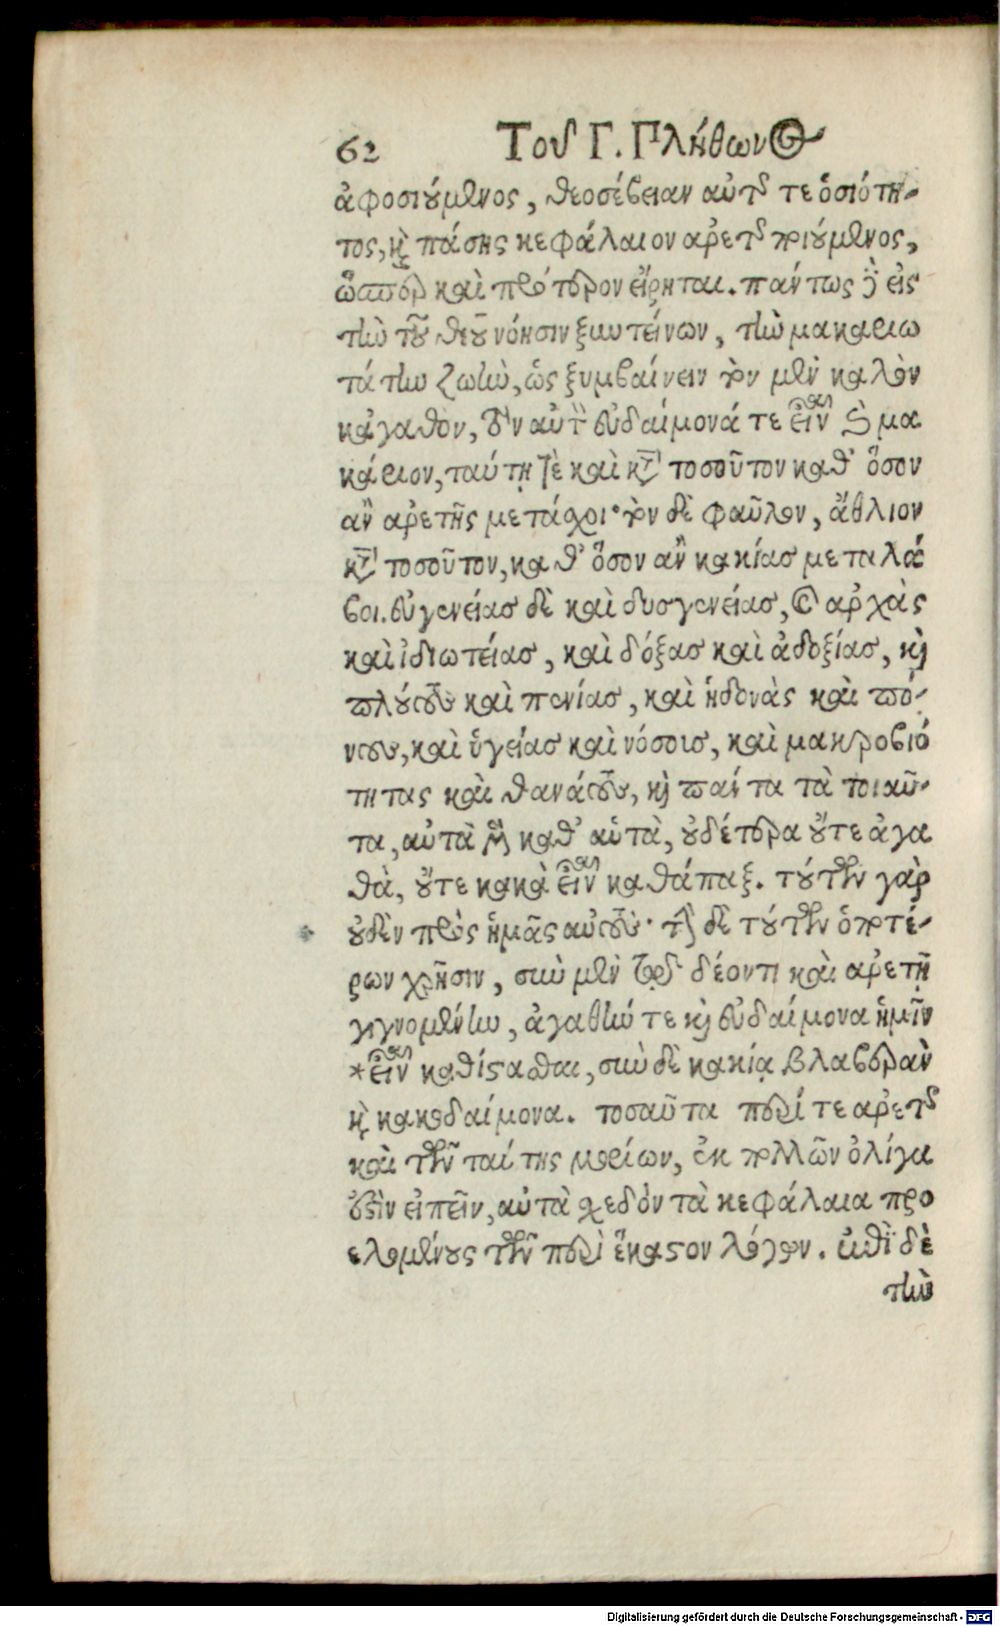 62 Τοῦ Γ. Πλήθωνος
ἀφοσιούμενος, θεοσέβειαν αὐτῆς τε ὁσιότη-
τος, καὶ πάσης κεφάλαιον ἀρετῆς ποιούμενος,
ὥσπερ καὶ πρότερον εἴρηται. πάντως δ' εἰς
τὴν τοῦ θεοῦ νόησιν ξυντείνων, τὴν μακαριω
τάτην ζωὴν, ὡς ξυμβαίνειν τὸν μὲν καλὸν
κἀγαθὸν, δι' αὐτὸ εὐδαίμονά τε εἶναι καὶ μα
κάριον, ταύτῃ τὲ καὶ κατὰ τοσοῦτον καθ' ὅσον
ἂν ἀρετῆς μετάχοι· τὸν δὲ φαῦλον, ἄθλιον
κατὰ τοσοῦτον, καθ' ὅσον ἂν κακίας μεταλά
βοι. εὐγενείας δὲ καὶ δυσγενείας, καὶ ἀρχὰς
καὶ ἰδιωτείας, καὶ δόξας καὶ ἀδοξίας, καὶ
πλούτους καὶ πενίας, καὶ ἡδονὰς καὶ πό-
νους, καὶ ὑγείας καὶ νόσους, καὶ μακροβιό
τητας καὶ θανάτους, καὶ πάντα τὰ τοιαῦ-
τα, αὐτὰ μὲν καθ' αὑτὰ, οὐδέτερα οὔτε ἀγα
θὰ, οὔτε κακὰ εἶναι καθάπαξ. τούτων γὰρ
οὐδὲν πρὸς ἡμᾶς αὐτούς· τὴν δὲ τούτων ὁποτέ-
ρων χρῆσιν, σὺν μὲν τῷ δέοντι καὶ ἀρετῇ
γιγνομένην, ἀγαθήν τε καὶ εὐδαίμονα ἡμῖν
*εἶναι καθίστασθαι, σὺν δὲ κακίᾳ βλαβερὰν
καὶ κακοδαίμονα. τοσαῦτα περί τε ἀρετῆς
καὶ τῶν ταύτης μορίων, ἐκ πολλῶν ὀλίγα
ἐστὶν εἰπεῖν, αὐτὰ σχεδόν τὰ κεφάλαια προ
ελομένους τῶν περὶ ἕκαστον λόγων. ἐπεὶ δὲ
τὴν
Digitalisierung gefördert durch die Deutsche Forschungsgemeinschaft - DFG